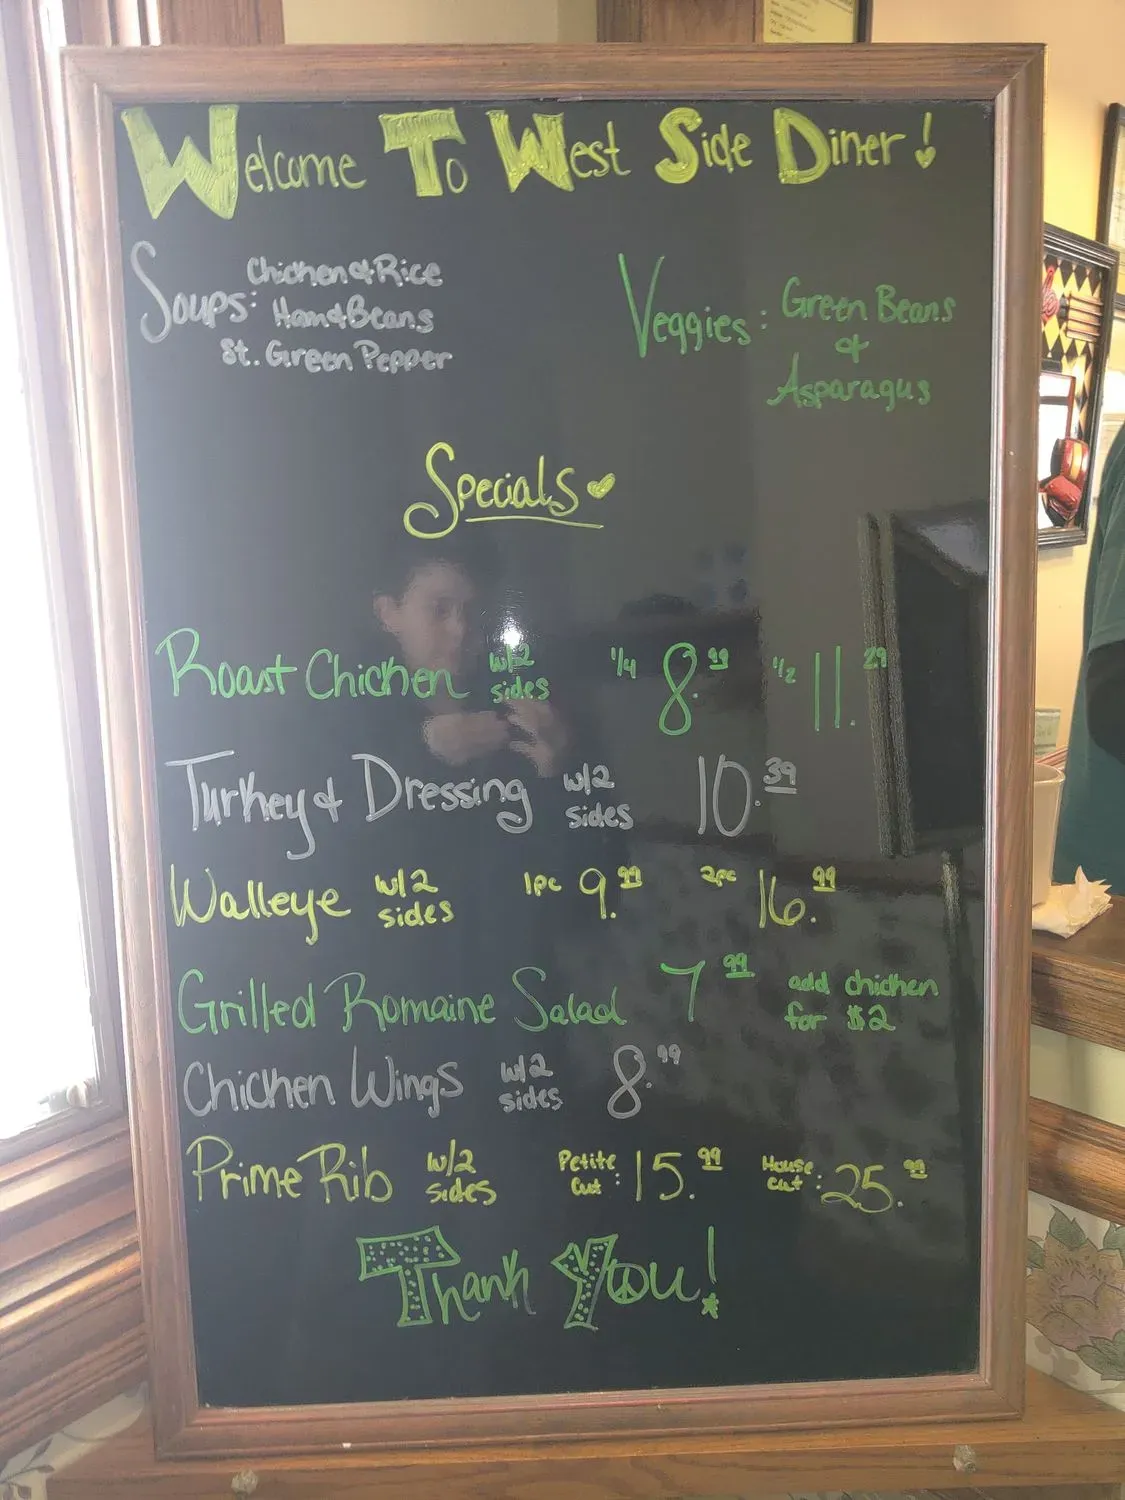 Welcome To West Side Diner!
Soups: Chicken & Rice
Ham & Beans
St. Green Pepper
Veggies: Green Beans
&
Asparagus
Specials
Roast Chicken w/2 sides 1/4 8.99 1/2 11.29
Turkey & Dressing w/2 sides 10.39
Walleye w/2 sides 1pc 9.99 2pc 16.99
Grilled Romaine Salad 7.99 add chicken for $2
Chicken Wings w/2 sides 8.99
Prime Rib w/2 sides Petite Cut: 15.99 House cut: 25.99
Thank You!